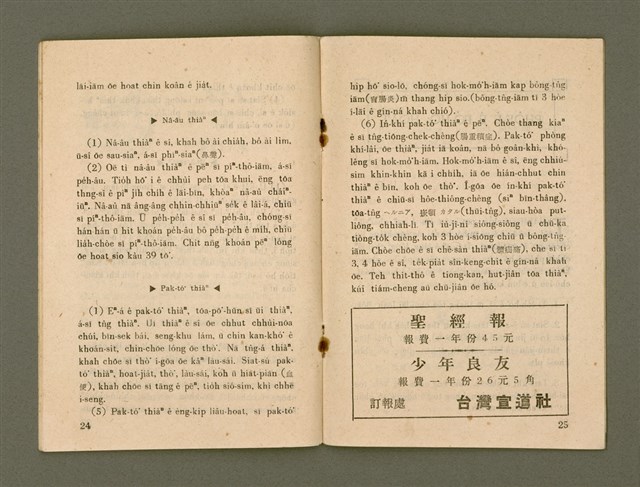 lāi-iām ōe hoat chin koân ê jia̍t.
▶ Nâ-âu thiàⁿ ◀
(1) Nâ-âu thiàⁿ ê sî, khah bô ài chia̍h, bô ài lim,
ū-sî ōe sau-siaⁿ, á-sī phīⁿ-siaⁿ(鼻聲).
(2) Ōe tì nâ-âu thiàⁿ ê pēⁿ sī pīⁿ-thô-iām, á-sī
pe̍h-âu. Tio̍h hō͘ i ê chhùi peh tōa khui, ēng tōa
thng-sî ê pīⁿ ji̍h chi̍h ê lāi-bīn, khòaⁿ nâ-âu chāiⁿ-
iūⁿ. Nâ-âu nā âng-âng chhin-chhiūⁿ sek-ê lâi-á, chiū
sī pīⁿ-thô-iām. Ū pe̍h-pe̍h ê sī sī pe̍h-âu, chóng-sī
hán-hán ū hit khoán pe̍h-âu bô pe̍h-pe̍h ê mi̍h, chiū
lia̍h-chòe sī pīⁿ-thô-iām. Chit nn̄g khoán pēⁿ lóng
ōe hoat sio kàu 39 tō͘.
▶ Pak-tó͘ thiàⁿ ◀
(1) Eⁿ-á ê pak-tó͘ thiàⁿ, tōa-pō͘-hūn sī ūi thiàⁿ,
á-sī tn̂g thiàⁿ. Ūi thiàⁿ ê sî ōe chhut chhùi-nōa
chúi, bīn-sek bái, seng-khu lám, ū chin kan-khó͘ ê
khoán-sit, chin-chōe lóng ōe thò͘. Nā tn̂g-á thiàⁿ,
khah chōe sî thò͘ i-gōa ōe kāⁿ làu-sái. Siat-sú pak-
tó͘ thiàⁿ, hoat-jia̍t, thò͘, làu-sái, koh ū hiat-piān (血
便), khah chōe sī tāng ê pēⁿ, tio̍h sió-sim, khì chhē
i-seng.
(5) Pak-tó͘ thiàⁿ ê èng-kip liâu-hoat, sī pak-tó͘
24
hip hō͘ sio-lō, chóng-sī hok-mō͘h-iām kap bông-tn̂g-
iām(盲腸炎)m̄ thang hip sio.(bông-tn̂g-iām tī 3 hòe
í-lāi ê gín-ná khah chió).
(6) Ín-khí pak-tó͘ thiàⁿ ê pēⁿ. Chòe thang kiaⁿ
ê sī tn̂g-tiông-chek-chèng(腸重積症). Pak-tó͘ phòng
khí-lâi, ōe thiàⁿ, jia̍t iā koân, nā bô goân-khì, khó-
lêng sī hok-mō͘h-iām. Hok-mō͘h-iām ê sî, ēng chhiú-
sim khin-khin kā i chhi̍h, iā ōe hián-chhut chin
thiàⁿ ê bīn, koh ōe thò͘. I-gōa ōe ín-khí pak-tó͘
thiàⁿ ê chiū-sī hôe-thiông-chêng (síⁿ bīn-thâng),
tōa-tn̂g ヘルニア, 嵌頓 カタル(thūi-tn̂g), siau-hòa put-
liông, chhiah-lī. Tī iù-jî-ni̍ siông-siông ū chū-ka
tiòng-to̍k chèng, koh 3 hòe í-siōng chiū ū bông-tn̂g-
iām. Chòe chōe ê sī chê-sàn thiàⁿ(臍疝痛), che sī tī
3, 4 hòe ê sî, te̍k-pia̍t sîn-keng-chit ê gín-ná khah
ōe. Teh thit-thô ê tiong-kan, hut-jiân tōa thiàⁿ,
kúi tiám-cheng āu chū-jiân ōe hó.
聖經報
報費一年份45元
少年良友
報費一年份26元5角
訂報處 台灣宣道社
25